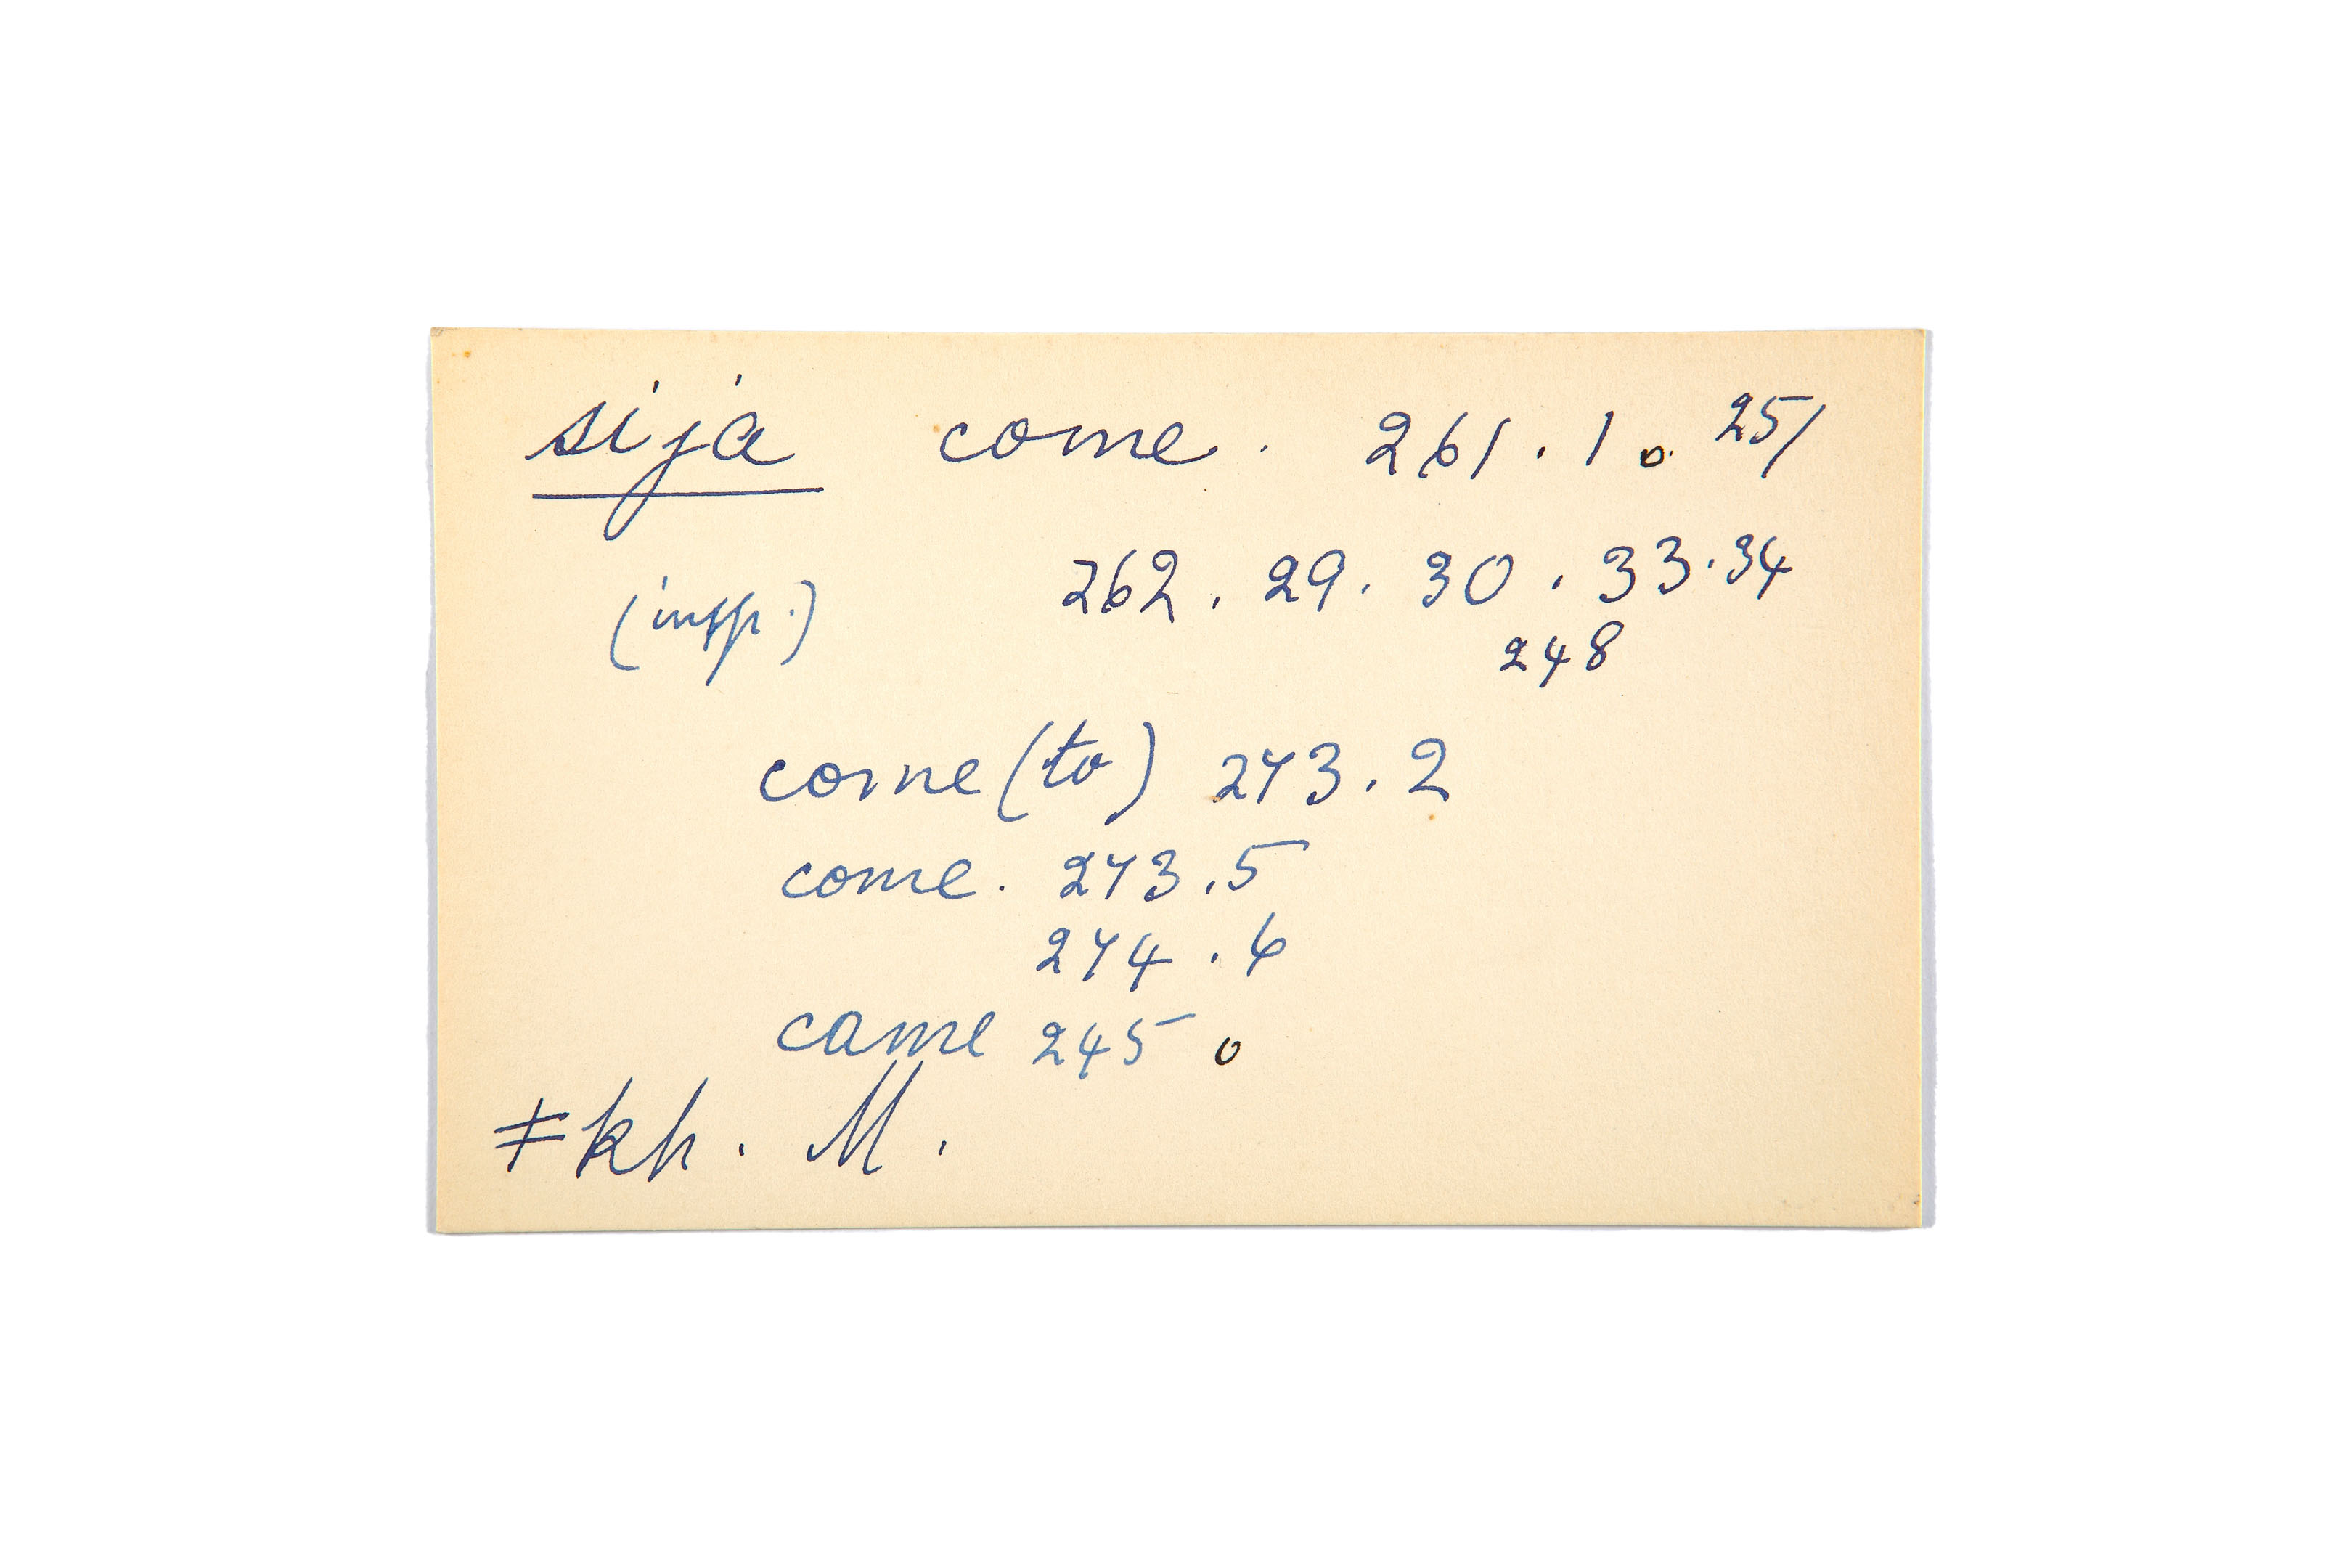 sija come. 261.1 o 251
262. 29. 30. 33.34
(insp.)
248
come (to) 273.2
come. 273.5
274.6
came 245 o
≠kh. M.